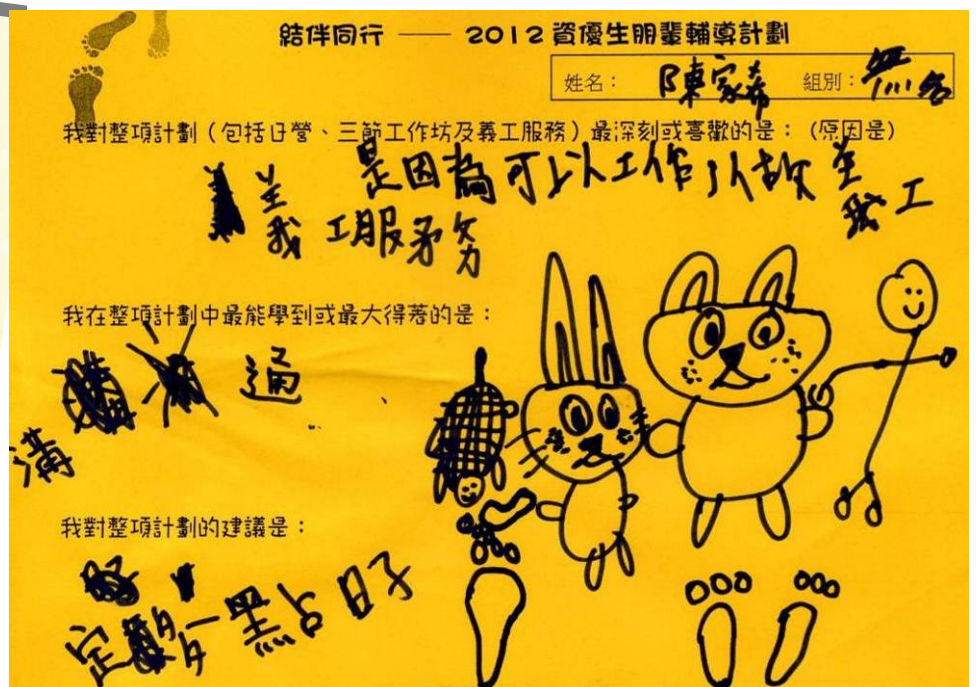 結伴同行 —— 2012 資優生朋輩輔導計劃
姓名： 陳家希 組別：
我對整項計劃（包括日營、三節工作坊及義工服務）最深刻或喜歡的是：(原因是)
是因為可以工作所以 義工
義工服務
我在整項計劃中最能學到或最大得着的是：
溝通
我對整項計劃的建議是：
定多一點日子